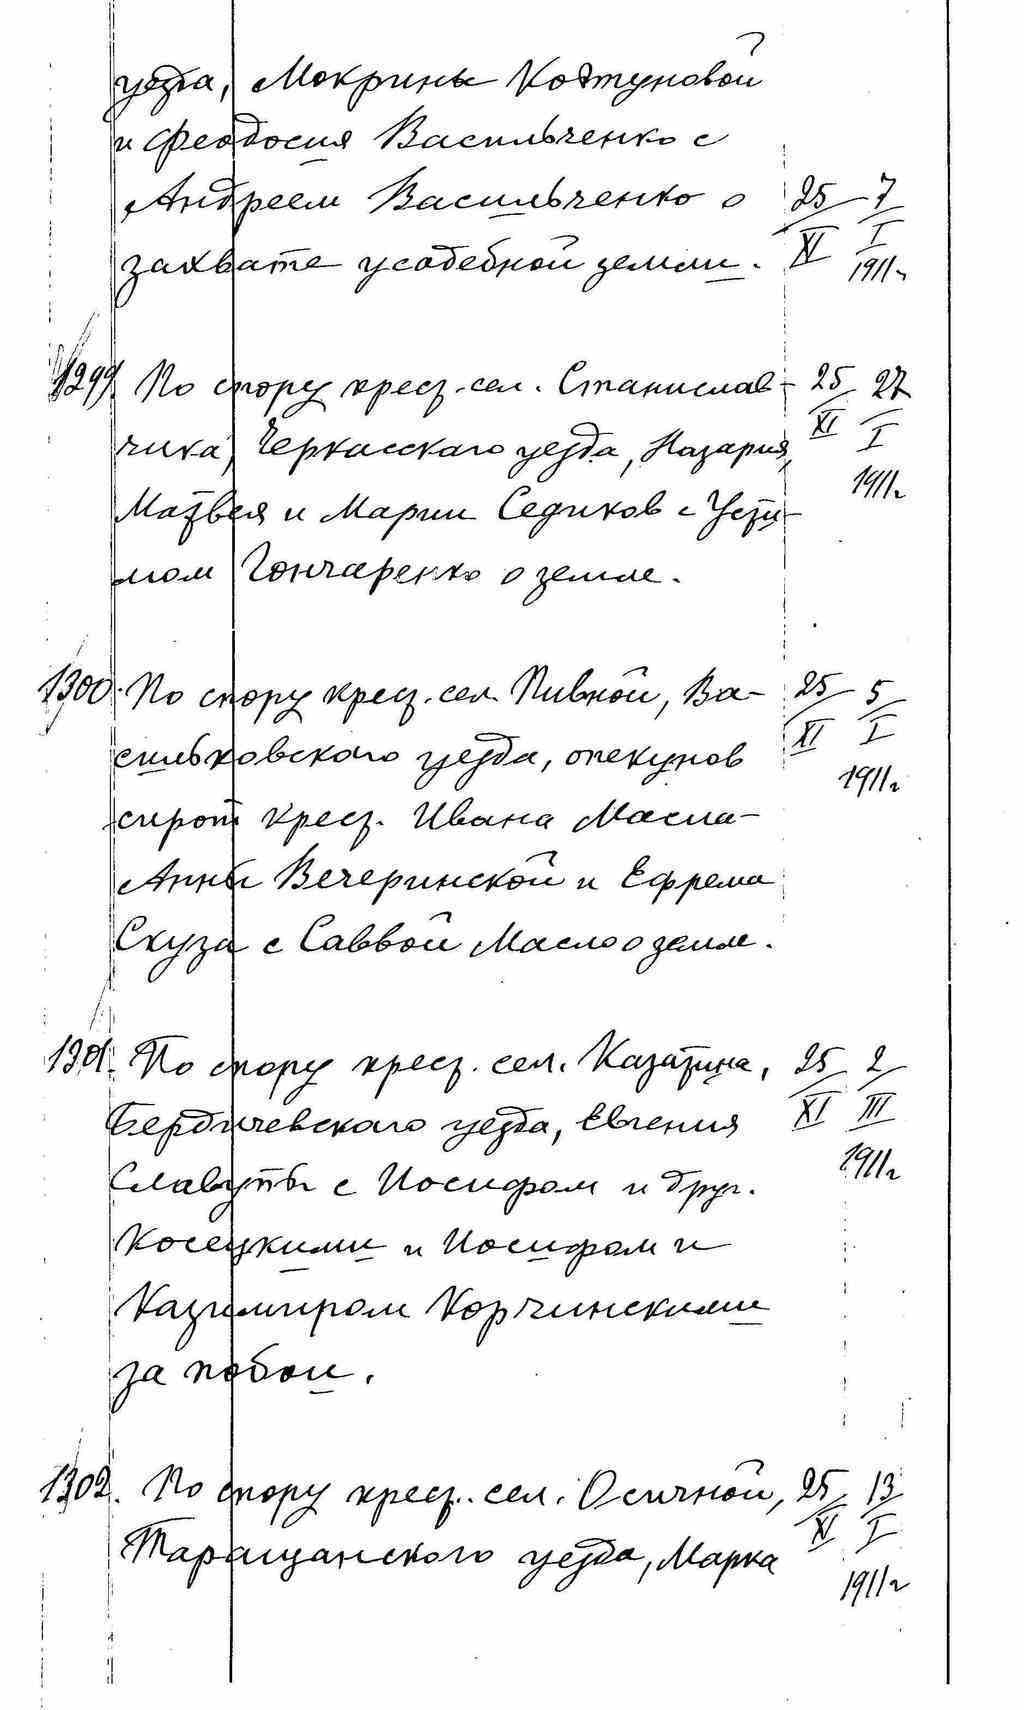 уезда, Мокрины Ковтуновой
и Феодосия Васильченко с
Андреем Васильченко о 25 7
захвате усадебной земли. XI I
1911г
1299. По спору крест. сел. Станислав- 25 27
чика, Черкасского уезда, Назария, XI I
Матвея и Марии Седиков с Усти- 1911г
мом Гончаренко о земле.
1300. По спору крест. сел. Пивной, Ва- 25 5
сильковского уезда, опекунов XI I
1911г
сирот крест. Ивана Масла-
Анны Вечеринской и Ефрема
Скуза с Саввой Масло о земле.
1301. По спору крест. сел. Казатина, 25 2
Бердичевского уезда, Евгения XI III
Славуты с Иосифом и друг. 1911г
Косецкими и Иосифом и
Казимиром Корчинскими
за побои.
1302. По спору крест. сел. Осичной, 25 13
Таращанского уезда, Марка XI I
1911г